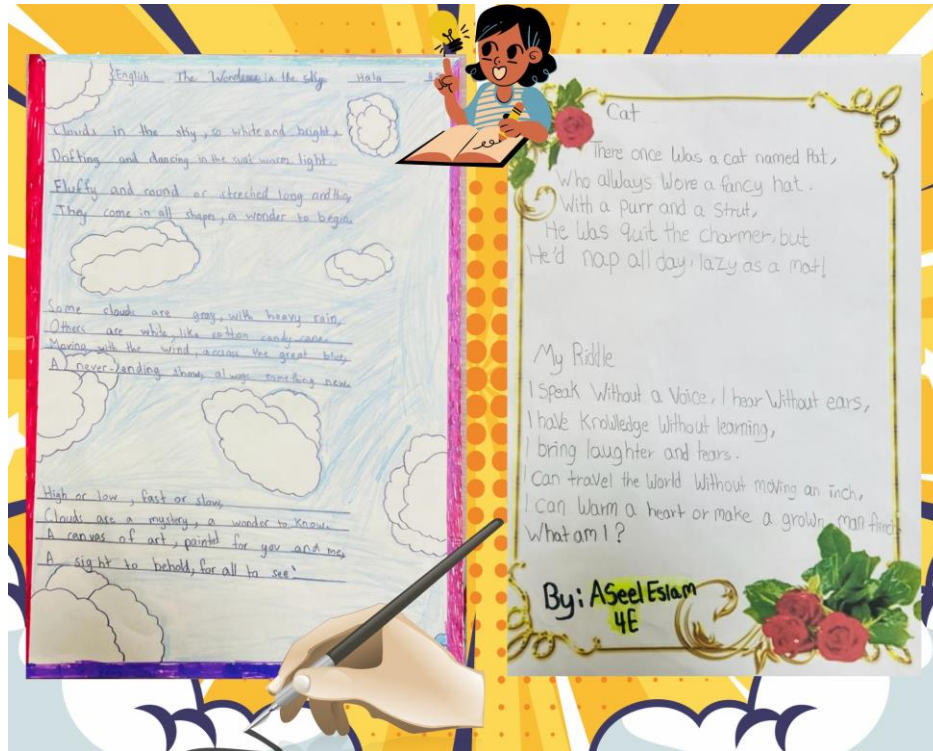 English The Wonderess in the sky Hala
Clouds in the sky, so white and bright,
Drifting and dancing in the suns warm light.
Fluffy and round or streched long and thin,
They come in all shapes, a wonder to begin.
Some clouds are gray, with heavy rain,
Others are white, like cotton candy cane.
Moving with the wind, across the great blue,
A never-ending show, always something new.
High or low, fast or slow,
Clouds are a mystery, a wonder to know.
A canvas of art, painted for you and me,
A sight to behold, for all to see.
Cat
There once was a cat named Pat,
Who allways wore a fancy hat.
With a purr and a strut,
He was quit the charmer, but
He'd nap all day, lazy as a mat!
My Riddle
I speak without a voice, I hear without ears,
I have knowledge without learning,
I bring laughter and tears.
I can travel the world without moving an inch,
I can warm a heart or make a grown man flinch.
What am I?
By: ASeel Eslam
4E